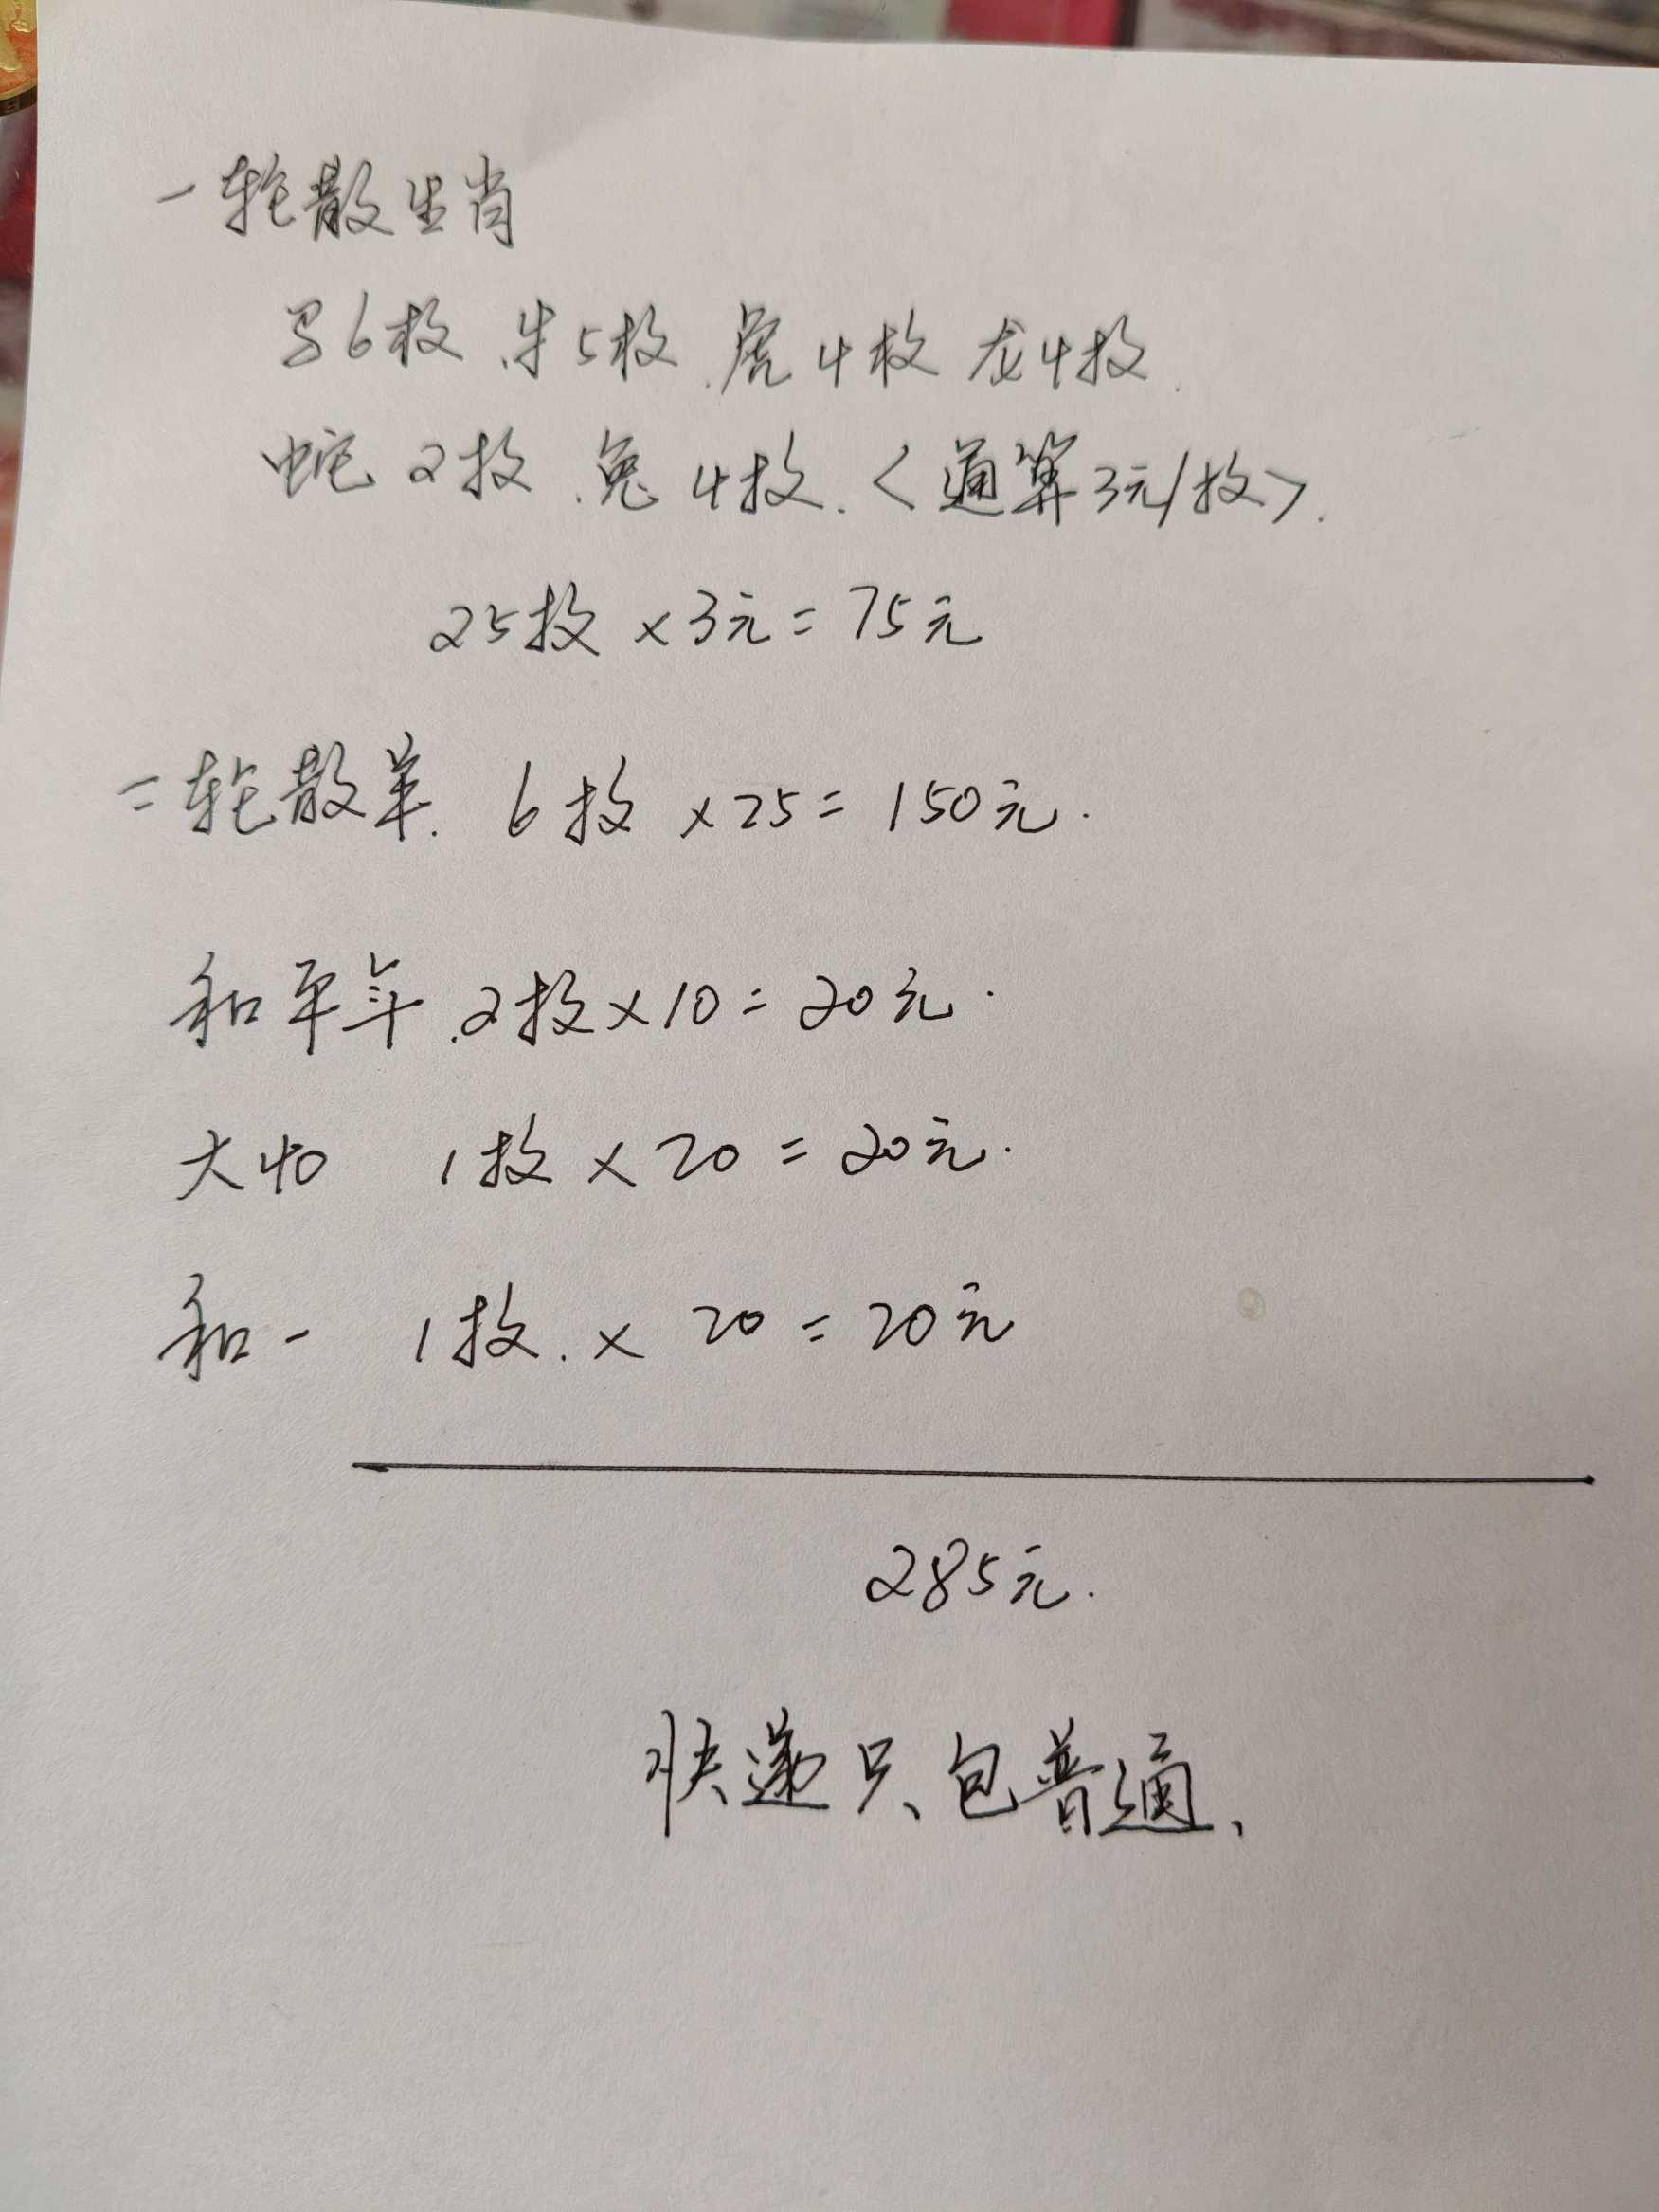 一轮散生肖
马6枚.牛5枚.虎4枚 龙4枚.
蛇2枚.兔4枚.<通算3元/枚>.
25枚×3元=75元
二轮散羊. 6枚×25=150元.
和平年.2枚×10=20元.
大抄 1枚×20=20元.
和一 1枚.×20=20元
285元.
快递只包普通、